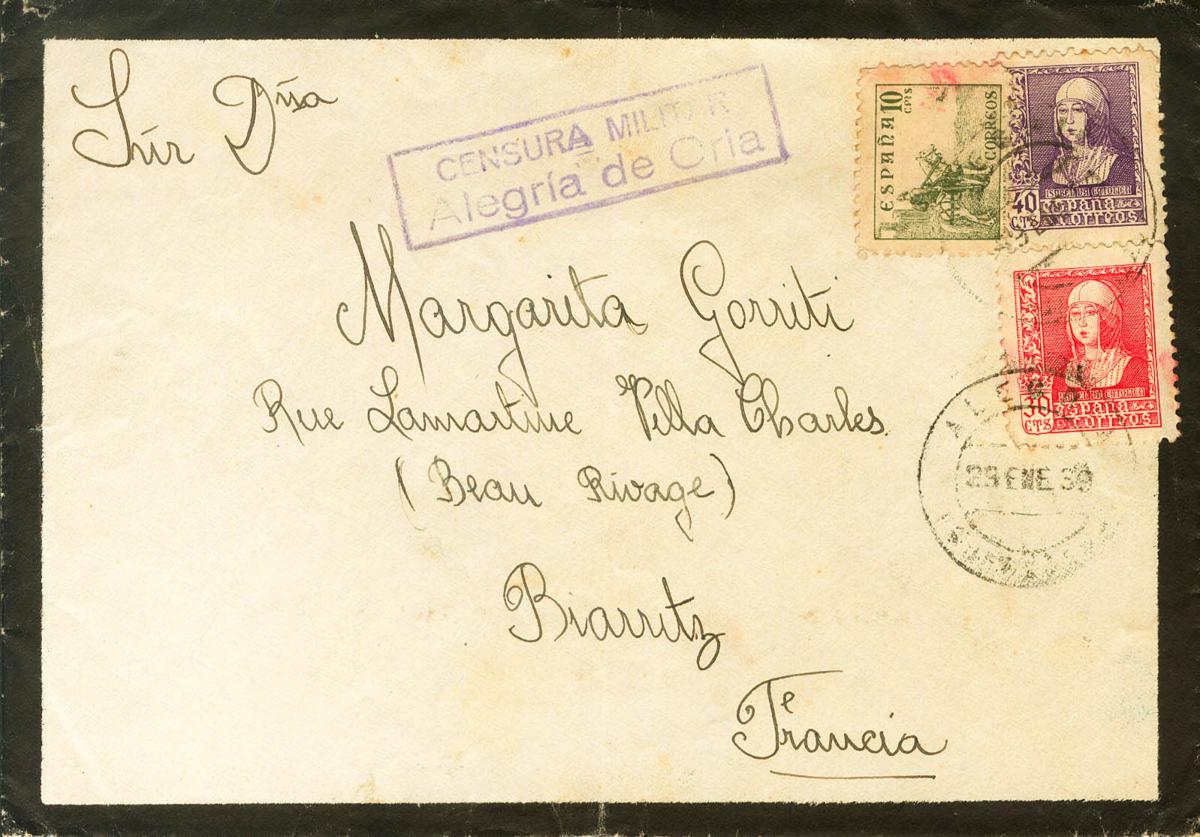 Sñr Dña
CENSURA MILITAR
Alegría de Oria
ESPAÑA 10 CTS
CORREOS
ISABEL LA CATOLICA
40 CTS España Correos
ISABEL LA CATOLICA
30 CTS España Correos
Margarita Gorriti
Rue Lamartine Villa Charles
(Beau Rivage)
Biarritz
Francia
ENE 39